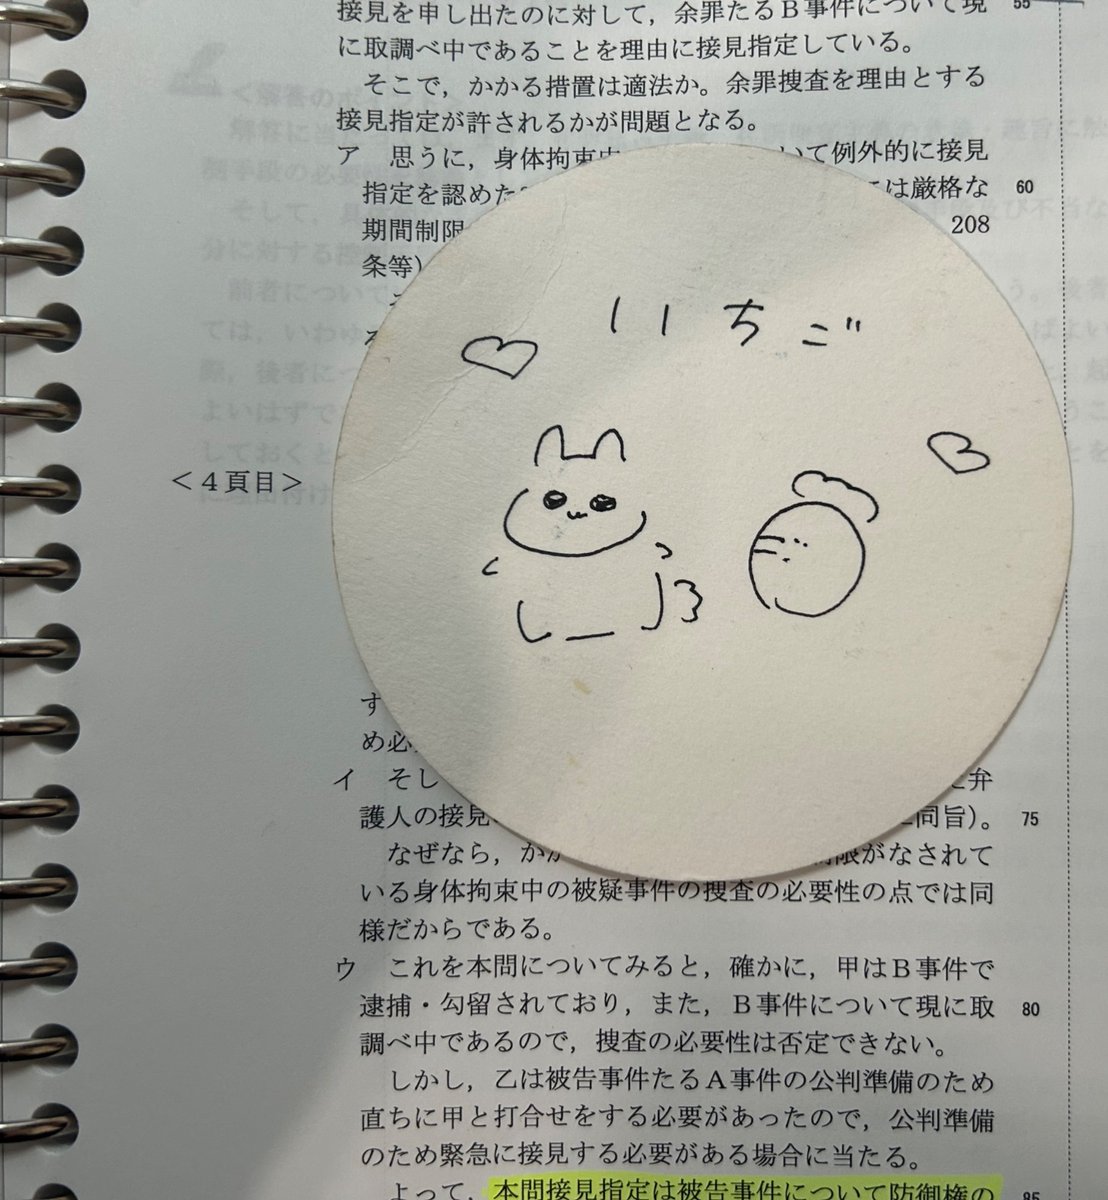 接見を申し出たのに対して，余罪たるＢ事件について現 55
に取調べ中であることを理由に接見指定している。
そこで，かかる措置は適法か。余罪捜査を理由とする
接見指定が許されるかが問題となる。
ア 思うに，身体拘束 いて例外的に接見
指定を認めた は厳格な 60
期間制限 208
条等）
いちご
＜４頁目＞
す
め必
イ そし 弁
護人の接見 同旨）。 75
なぜなら，かか 限がなされて
いる身体拘束中の被疑事件の捜査の必要性の点では同
様だからである。
ウ これを本問についてみると，確かに，甲はＢ事件で
逮捕・勾留されており，また，Ｂ事件について現に取 80
調べ中であるので，捜査の必要性は否定できない。
しかし，乙は被告事件たるＡ事件の公判準備のため
直ちに甲と打合せをする必要があったので，公判準備
のため緊急に接見する必要がある場合に当たる。
よって，本問接見指定は被告事件について防御権の 85